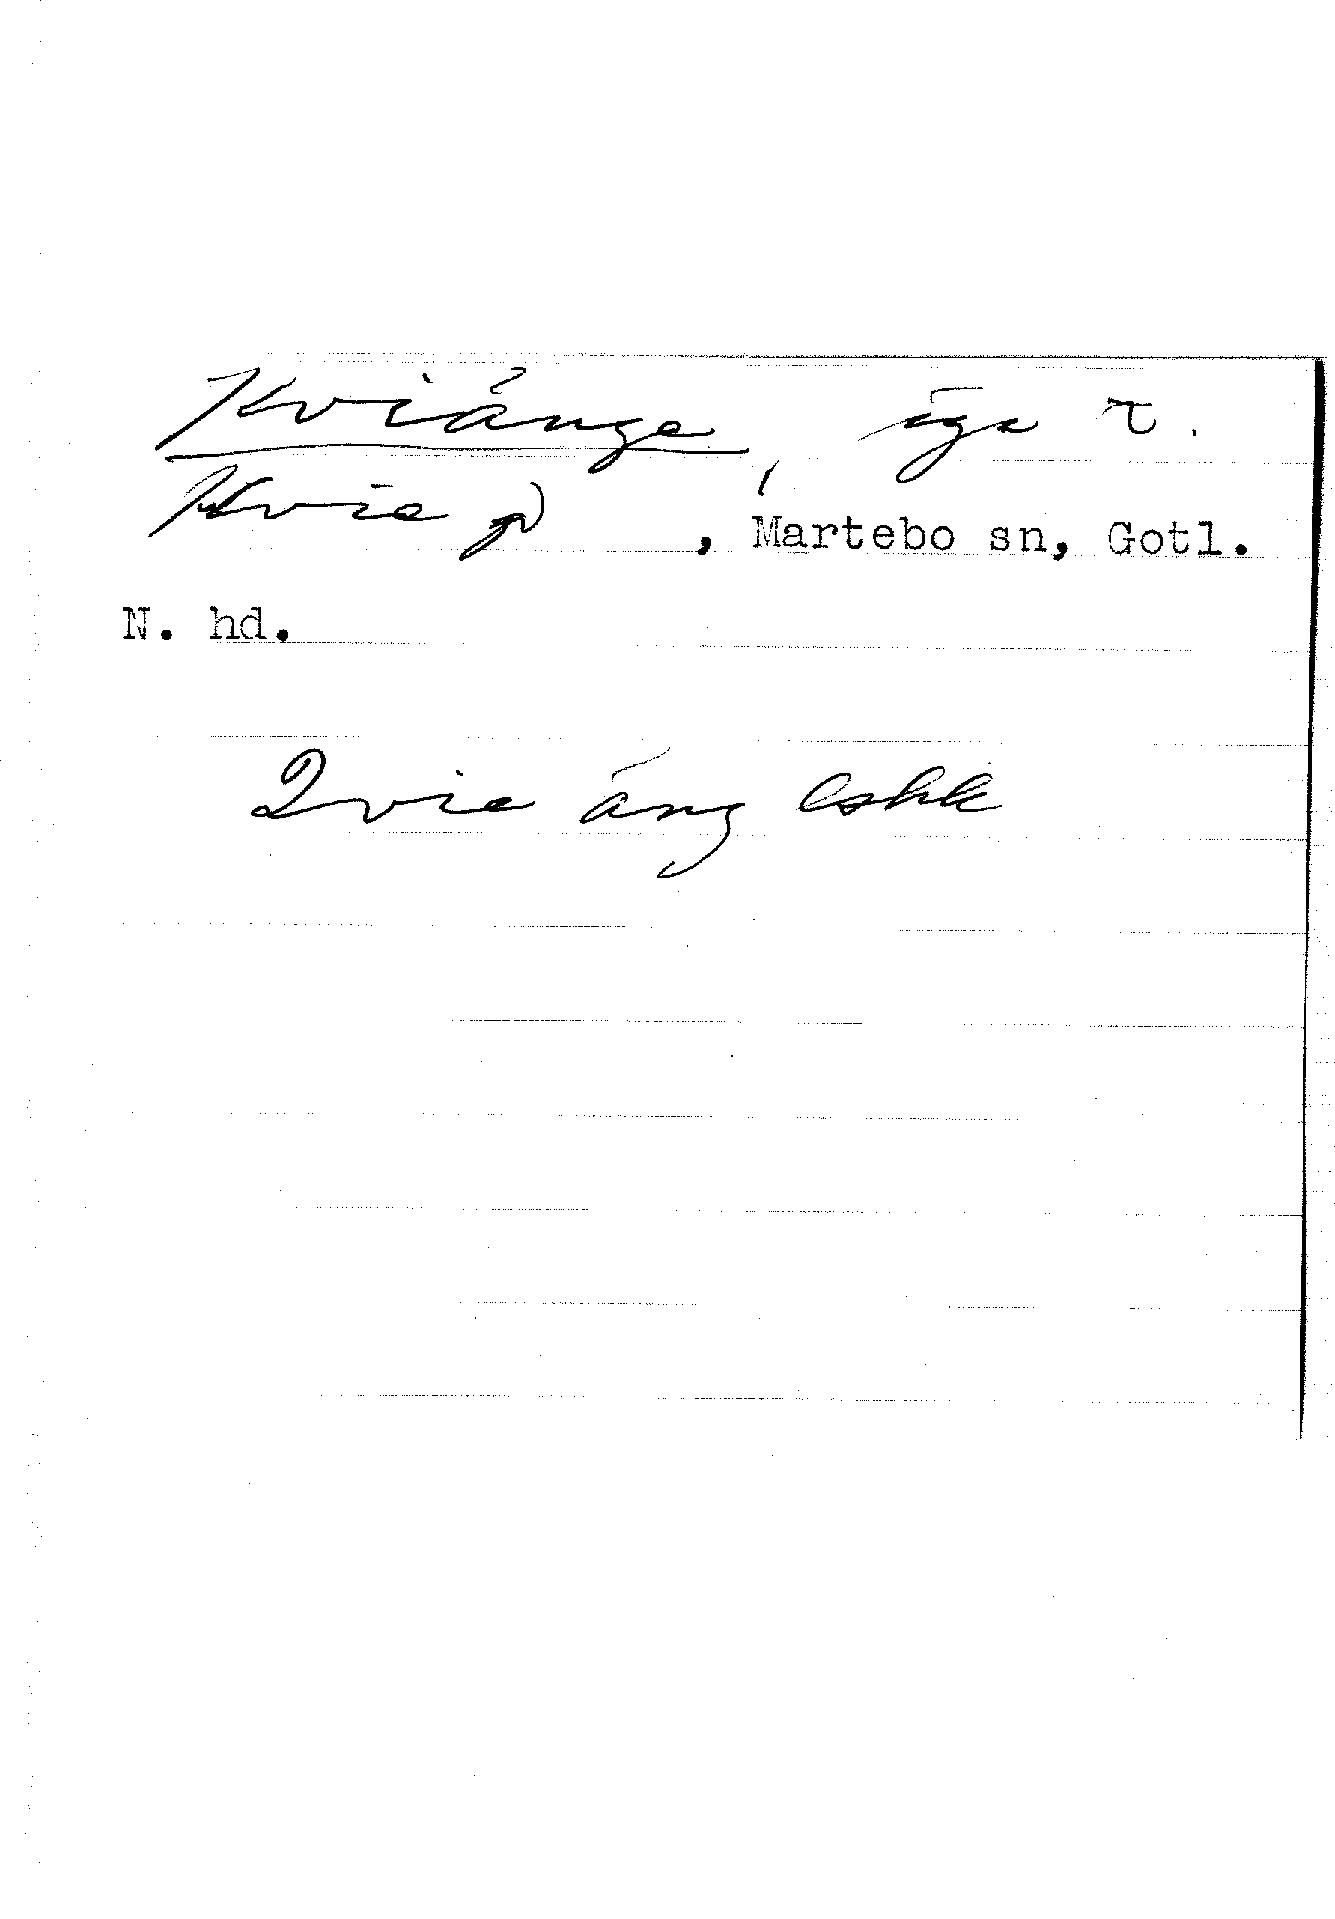 Kviänge, äga τ.
Kvie p , Martebo sn, Gotl.
N. hd.
Qvie äng